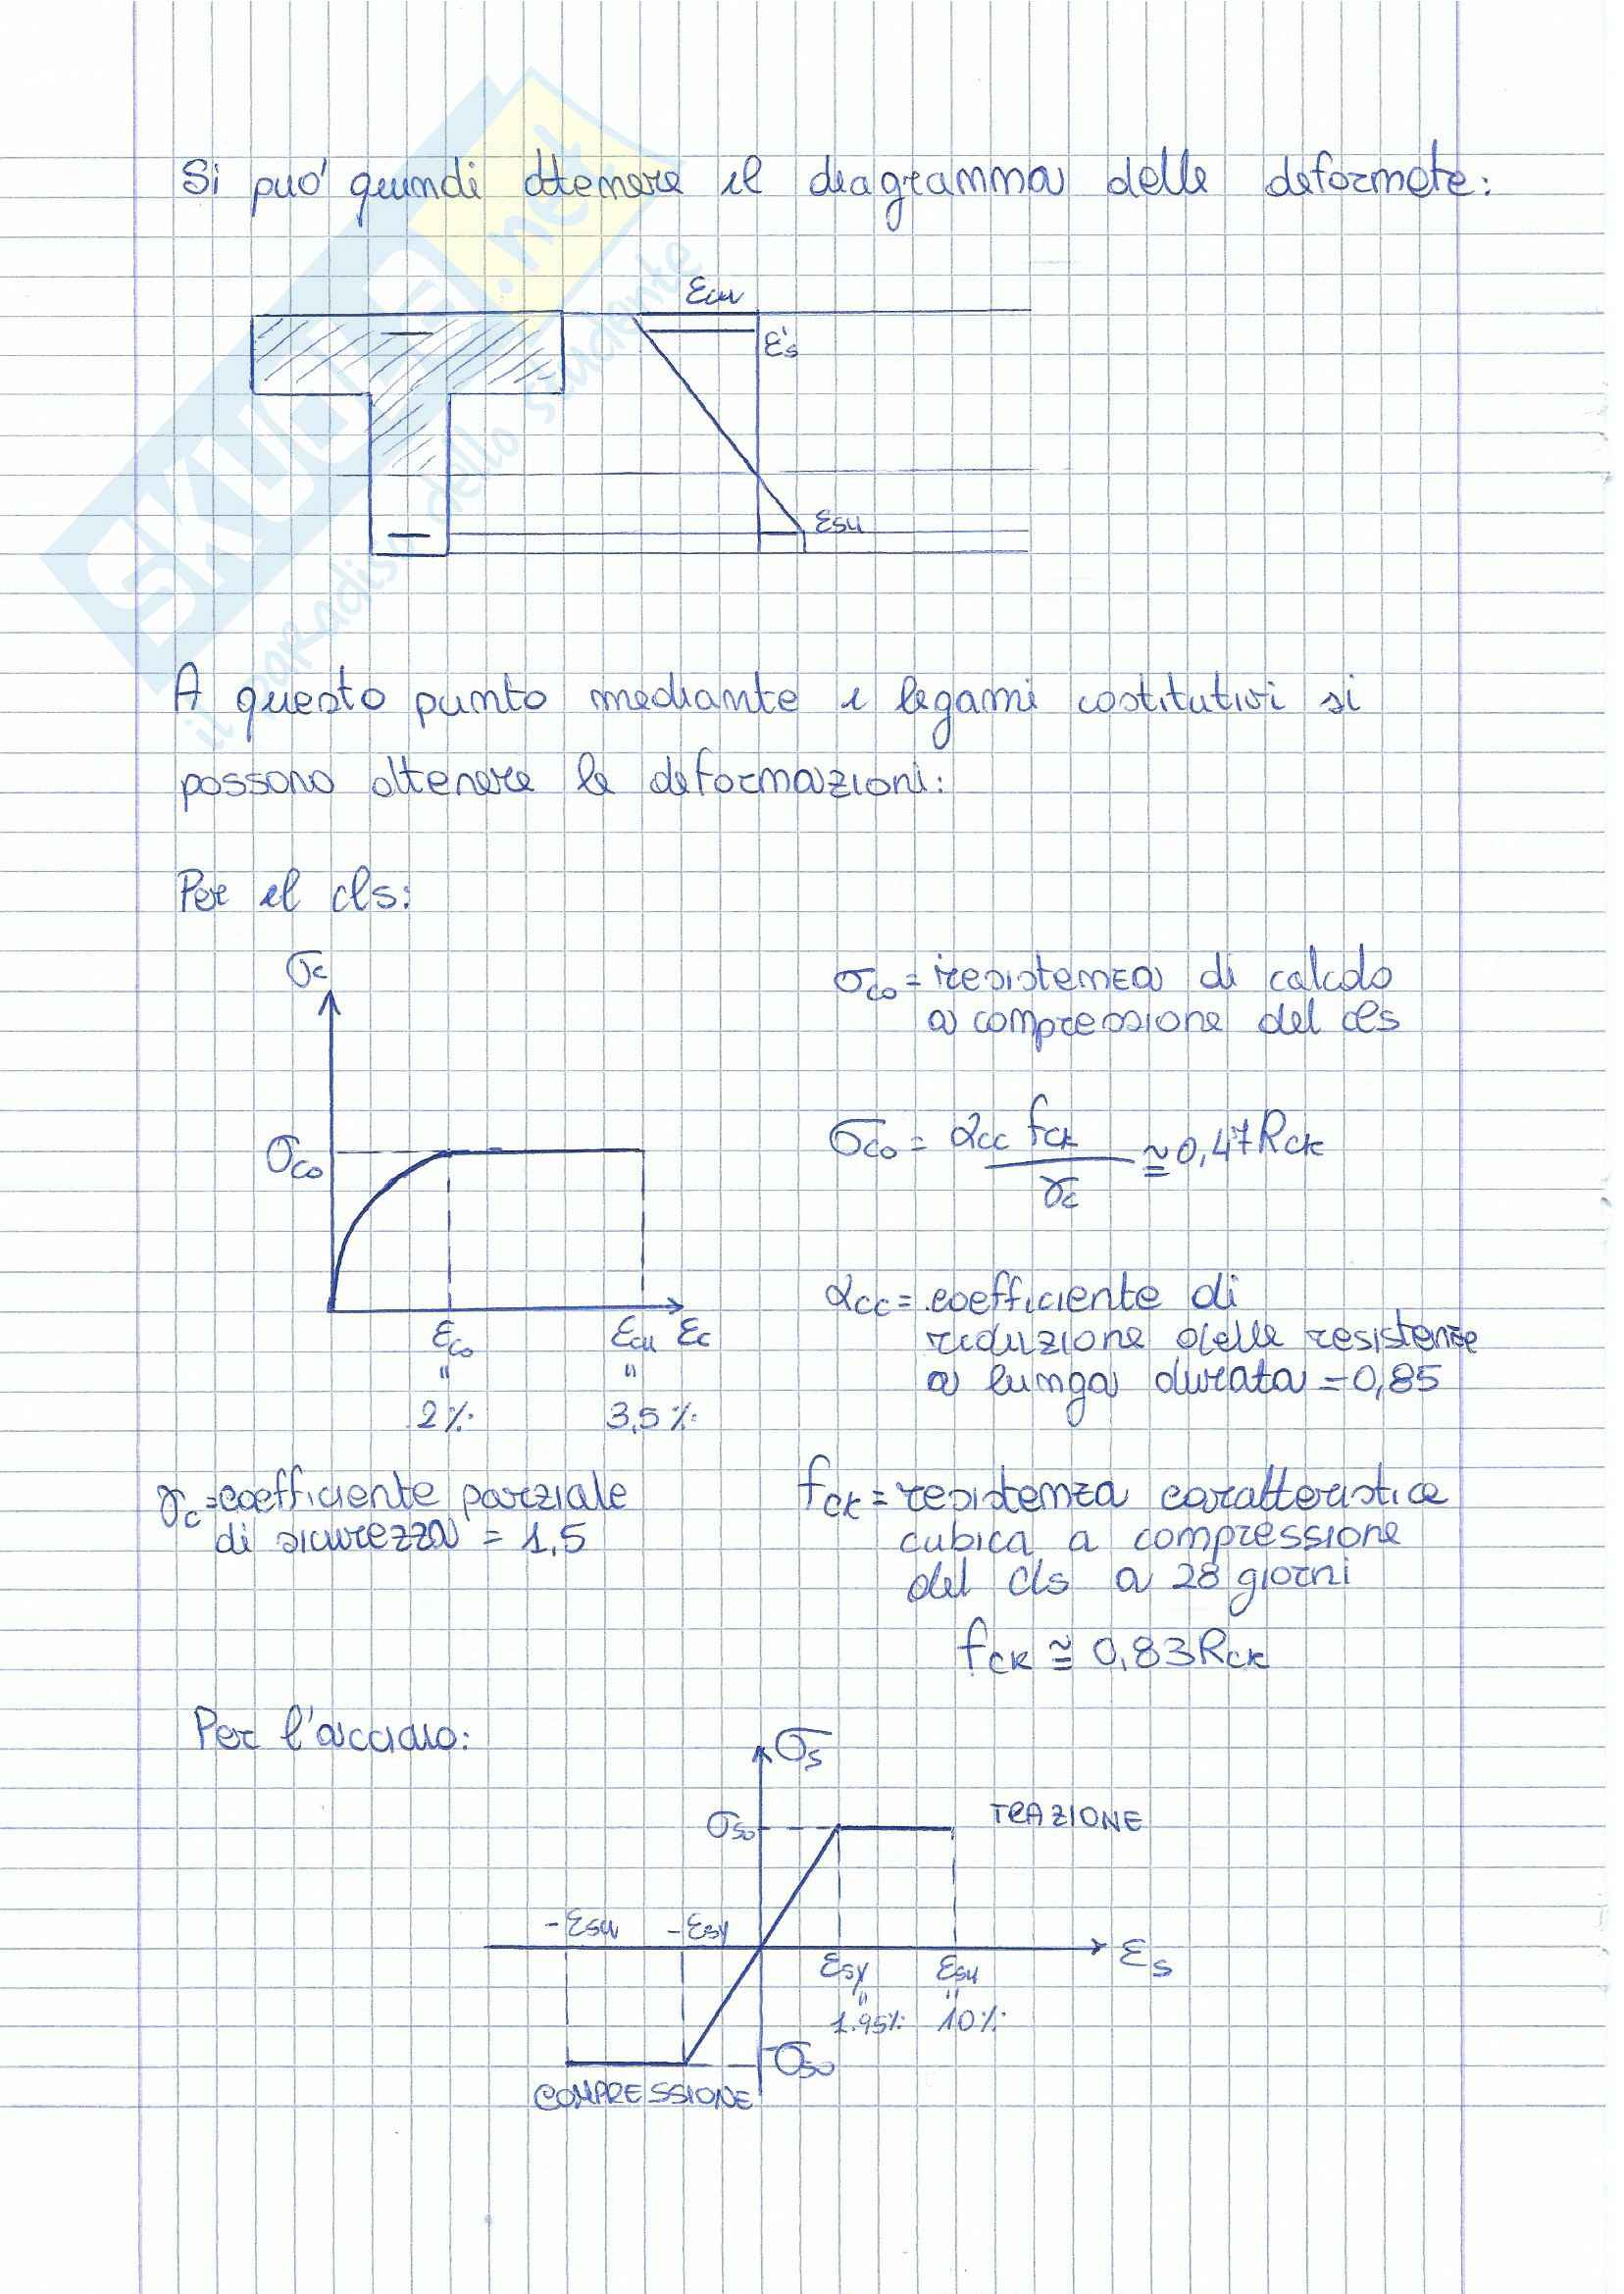 Si può quindi ottenere il diagramma delle deformate:
εcu
ε's
εsu
A questo punto mediante i legami costitutivi si
possono ottenere le deformazioni:
Per il cls:
σc
σco
εco
εcu
εc
"
"
2‰
3,5‰
σco = resistenza di calcolo
a compressione del cls
σco = αcc fck / γc ≅ 0,47 Rck
αcc = coefficiente di
riduzione delle resistenze
a lunga durata = 0,85
γc = coefficiente parziale
di sicurezza = 1,5
fck = resistenza caratteristica
cubica a compressione
del cls a 28 giorni
fck ≅ 0,83 Rck
Per l'acciaio:
σs
σso
TRAZIONE
-εsu
-εsy
εsy
εsu
εs
"
"
1.95‰
10‰
-σso
COMPRESSIONE
SKUOLA.net
il paradiso dello studente